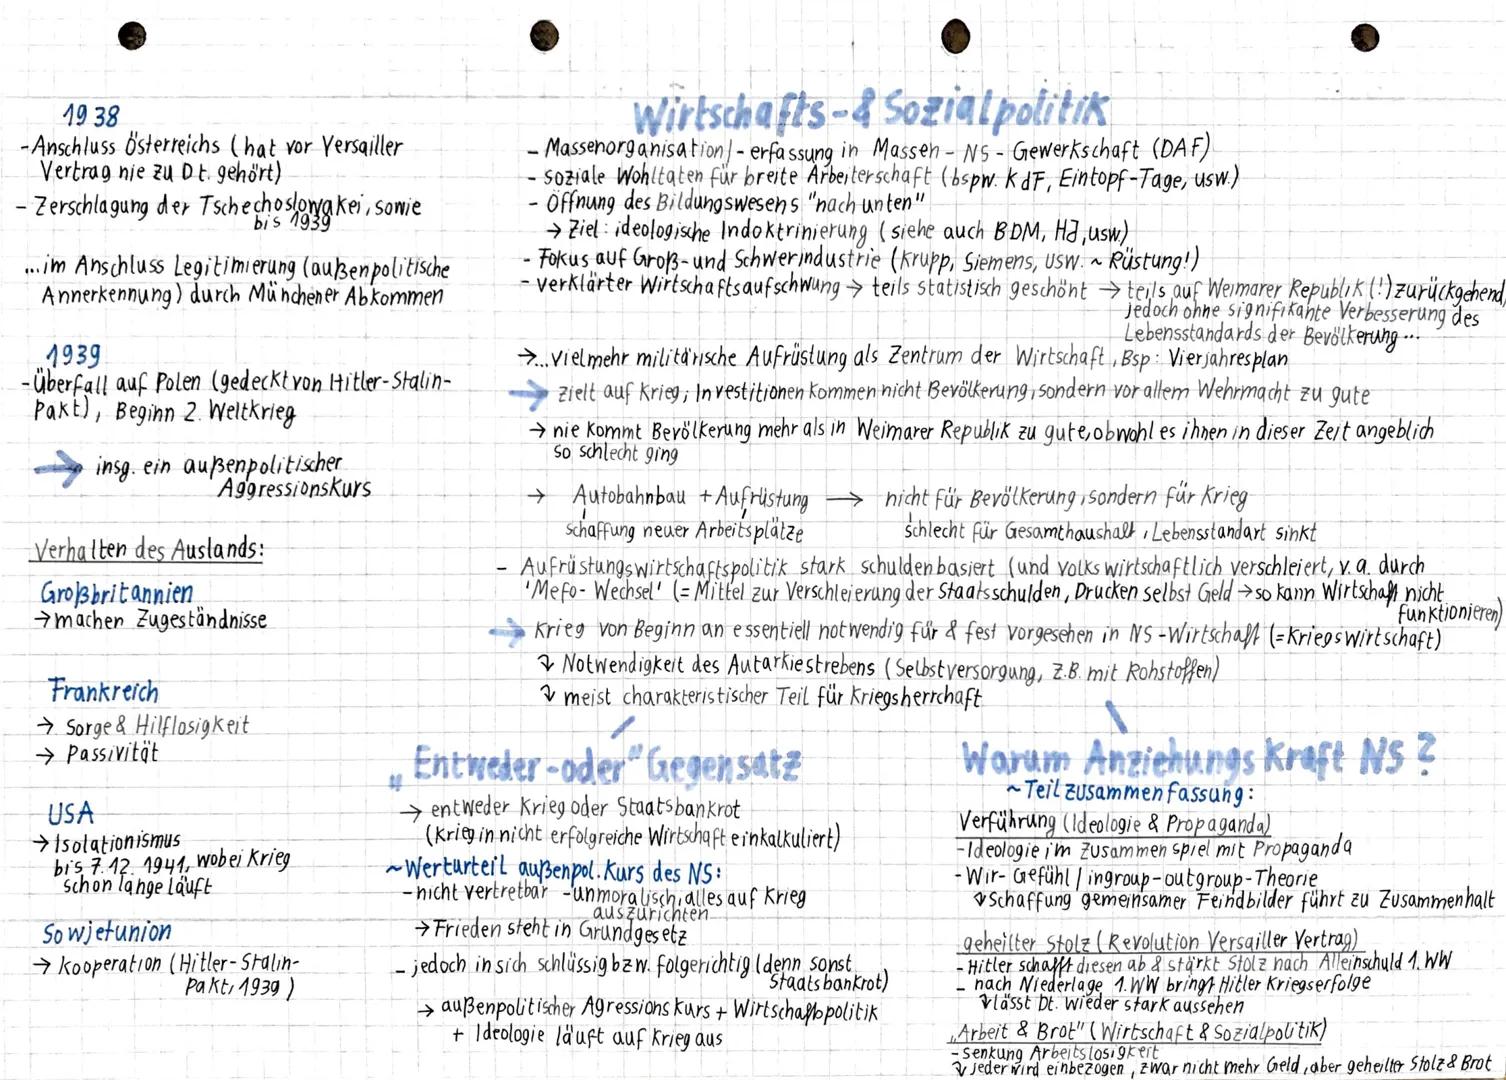 1938
-Anschluss Österreichs (hat vor Versailler
Vertrag nie zu Dt. gehört)
- Zerschlagung der Tschechoslowakei, sowie
bis 1939
...im Anschluss Legitimierung (außenpolitische
Annerkennung) durch Münchener Abkommen
1939
-Überfall auf Polen (gedeckt von Hitler-Stalin-
Pakt), Beginn 2. Weltkrieg
→ insg. ein außenpolitischer
Aggressionskurs
Verhalten des Auslands:
Großbritannien
→ machen Zugeständnisse
Frankreich
→ Sorge & Hilflosigkeit
→ Passivität
USA
→ Isolationismus
bis 7.12.1941, wobei Krieg
schon lange läuft
Sowjetunion
→ Kooperation (Hitler-Stalin-
Pakt, 1939)
Wirtschafts-& Sozialpolitik
- Massenorganisation/-erfassung in Massen-NS-Gewerkschaft (DAF)
- soziale Wohltaten für breite Arbeiterschaft (bspw. KdF, Eintopf-Tage, usw.)
- Öffnung des Bildungswesens "nach unten"
→ Ziel: ideologische Indoktrinierung (siehe auch BDM, HJ, usw.)
- Fokus auf Groß- und Schwerindustrie (Krupp, Siemens, usw. ~ Rüstung!)
- verklärter Wirtschaftsaufschwung → teils statistisch geschönt → teils auf Weimarer Republik (!) zurückgehend,
jedoch ohne signifikante Verbesserung des
Lebensstandards der Bevölkerung...
→...vielmehr militärische Aufrüstung als Zentrum der Wirtschaft, Bsp: Vierjahresplan
→ zielt auf Krieg; Investitionen kommen nicht Bevölkerung, sondern vor allem Wehrmacht zu gute
→ nie kommt Bevölkerung mehr als in Weimarer Republik zu gute, obwohl es ihnen in dieser Zeit angeblich
so schlecht ging
→ Autobahnbau + Aufrüstung → nicht für Bevölkerung, sondern für Krieg
schaffung neuer Arbeitsplätze schlecht für Gesamthaushalt, Lebensstandart sinkt
- Aufrüstungswirtschaftspolitik stark schuldenbasiert (und volkswirtschaftlich verschleiert, v.a. durch
'Mefo-Wechsel' (= Mittel zur Verschleierung der Staatsschulden, Drucken selbst Geld → so kann Wirtschaft nicht
funktionieren)
→ Krieg von Beginn an essentiell notwendig für & fest vorgesehen in NS-Wirtschaft (=Kriegswirtschaft)
↳ Notwendigkeit des Autarkiestrebens (Selbstversorgung, z.B. mit Rohstoffen)
↳ meist charakteristischer Teil für Kriegsherrchaft
„Entweder-oder" Gegensatz
→ entweder Krieg oder Staatsbankrot
(Krieg in nicht erfolgreiche Wirtschaft einkalkuliert)
~Werturteil außenpol. Kurs des NS:
-nicht vertretbar -unmoralisch, alles auf Krieg
auszurichten
→ Frieden steht in Grundgesetz
- jedoch in sich schlüssig bzw. folgerichtig (denn sonst
Staatsbankrot)
→ außenpolitischer Agressionskurs + Wirtschaftspolitik
+ Ideologie läuft auf Krieg aus
Warum Anziehungskraft NS?
~Teilzusammenfassung:
Verführung (Ideologie & Propaganda)
-Ideologie im Zusammenspiel mit Propaganda
-Wir-Gefühl / ingroup-outgroup-Theorie
↳ Schaffung gemeinsamer Feindbilder führt zu Zusammenhalt
geheilter Stolz (Revolution Versailler Vertrag)
- Hitler schafft diesen ab & stärkt Stolz nach Alleinschuld 1. WW
- nach Niederlage 1. WW bringt Hitler Kriegserfolge
↳ lässt Dt. wieder stark aussehen
„Arbeit & Brot" (Wirtschaft & Sozialpolitik)
-Senkung Arbeitslosigkeit
↳ jeder wird einbezogen, zwar nicht mehr Geld, aber geheilter Stolz & Brot